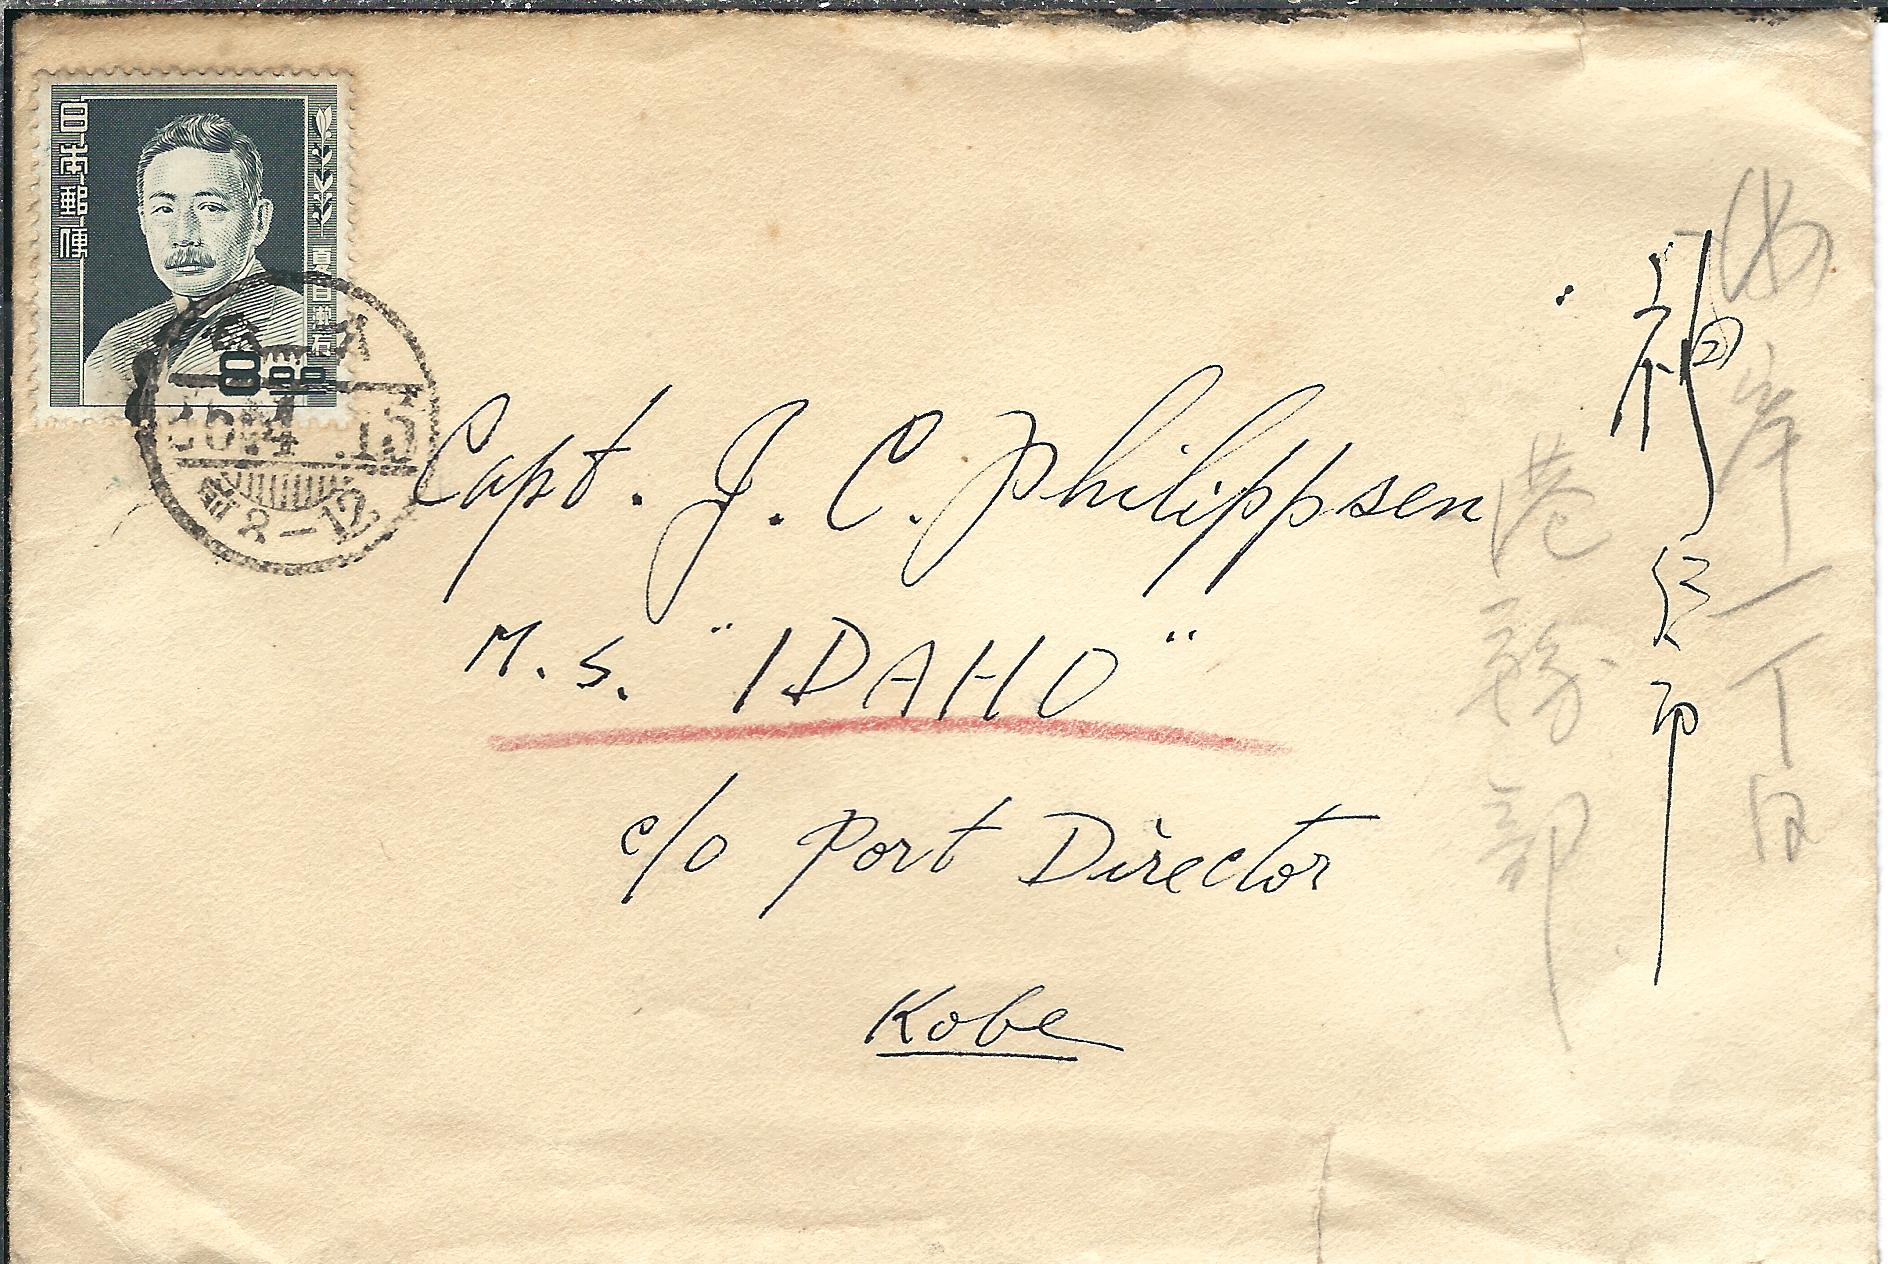 日本郵便
夏目漱石
8.00
26.4.15
前8-12
Capt. J. C. Philippsen
M.S. "IDAHO"
c/o Port Director
Kobe
神戸市
海岸一丁目
港務部